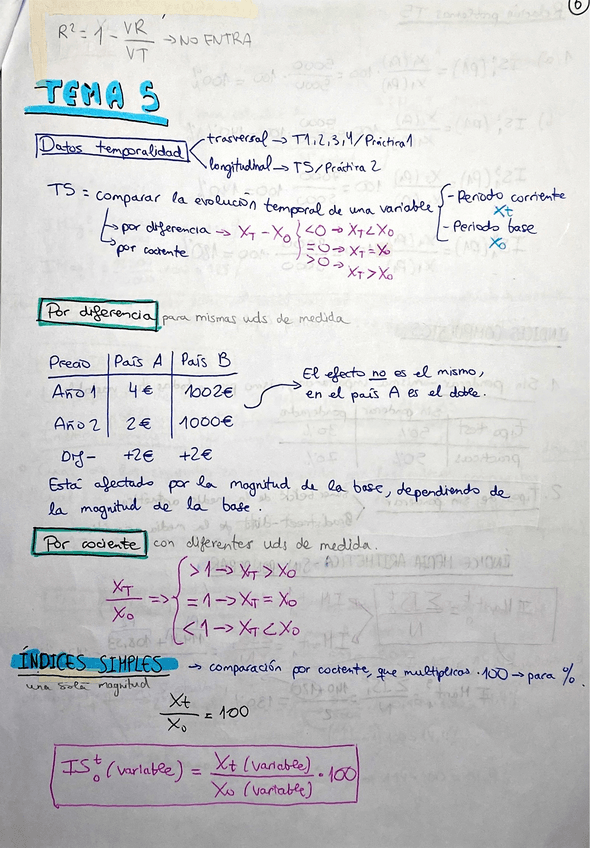 6
R² = 1 - VR/VT → NO ENTRA
TEMA 5
Datos temporalidad
trasversal → T1,2,3,4/Práctica1
longitudinal → T5/Práctica 2
T5 = comparar la evolución temporal de una variable
- Periodo corriente
Xt
- Periodo base
X₀
→ por diferencia → X_T - X₀
<0 → X_T < X₀
=0 → X_T = X₀
>0 → X_T > X₀
→ por cociente
Por diferencia para mismas uds de medida
Precio | País A | País B
Año 1 | 4€ | 1002€
Año 2 | 2€ | 1000€
Dif- +2€ +2€
El efecto no es el mismo,
en el país A es el doble.
Está afectado por la magnitud de la base, dependiendo de
la magnitud de la base.
Por cociente con diferentes uds de medida.
X_T/X₀ =>
>1 → X_T > X₀
=1 → X_T = X₀
<1 → X_T < X₀
ÍNDICES SIMPLES → comparación por cociente, que multiplicas ·100 → para %.
una sola magnitud
Xt/X₀ = 100
IS₀ᵗ (variable) = Xt (variable)/X₀ (variable) · 100